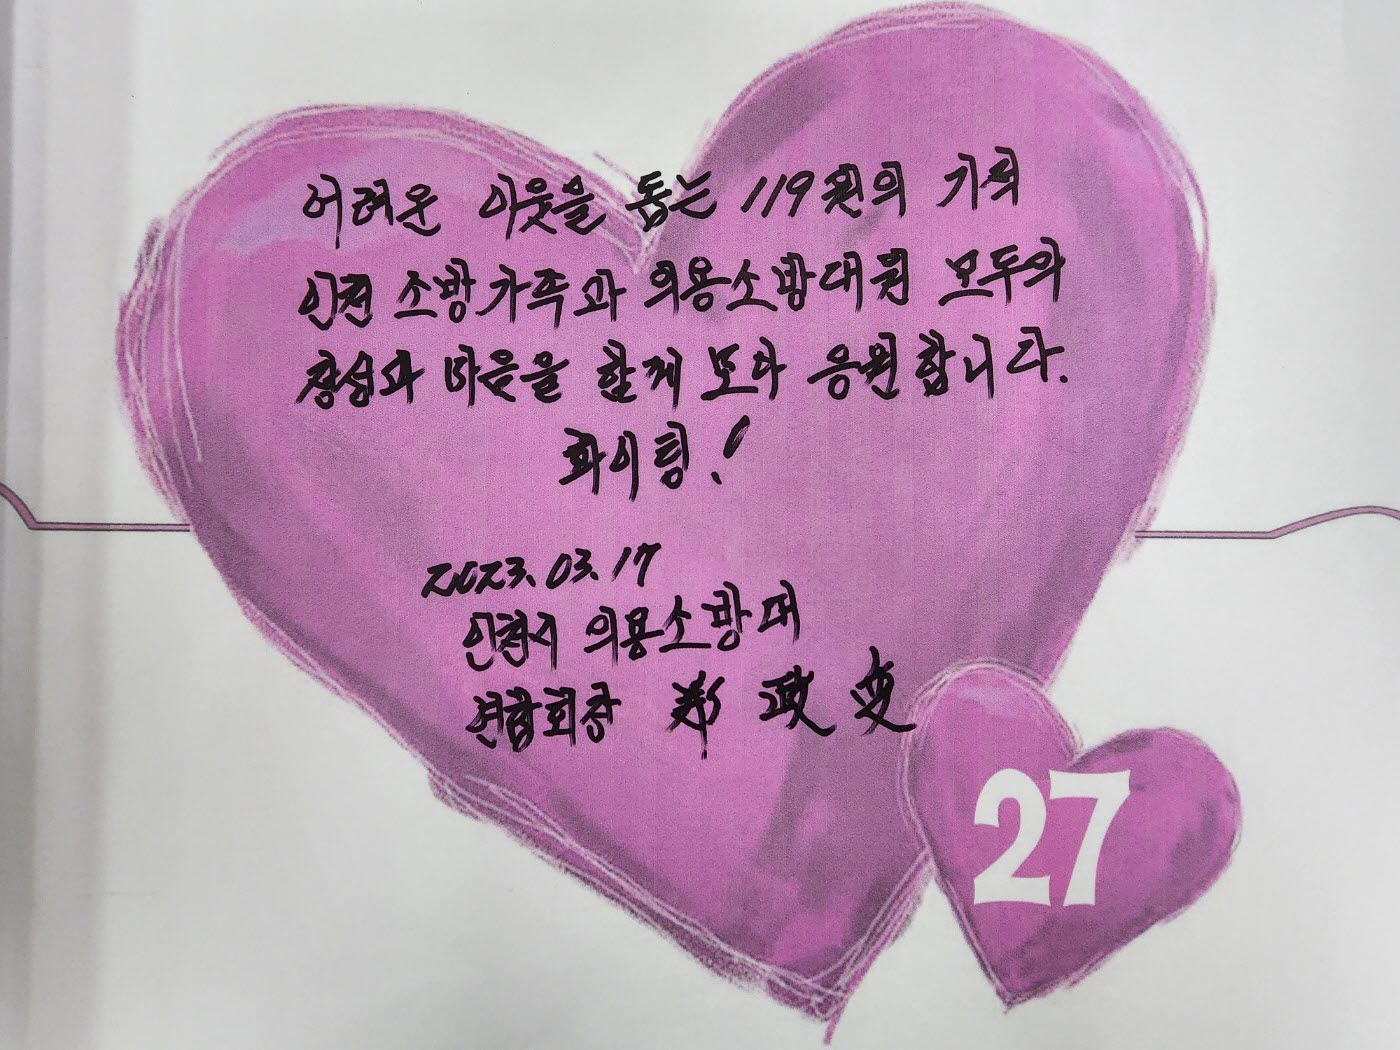 어려운 이웃을 돕는 119원의 기적
인천 소방가족과 의용소방대원 모두의
정성과 마음을 함께 모아 응원합니다.
화이팅!
2023.03.17
인천시 의용소방대
연합회장 鄭 政
27